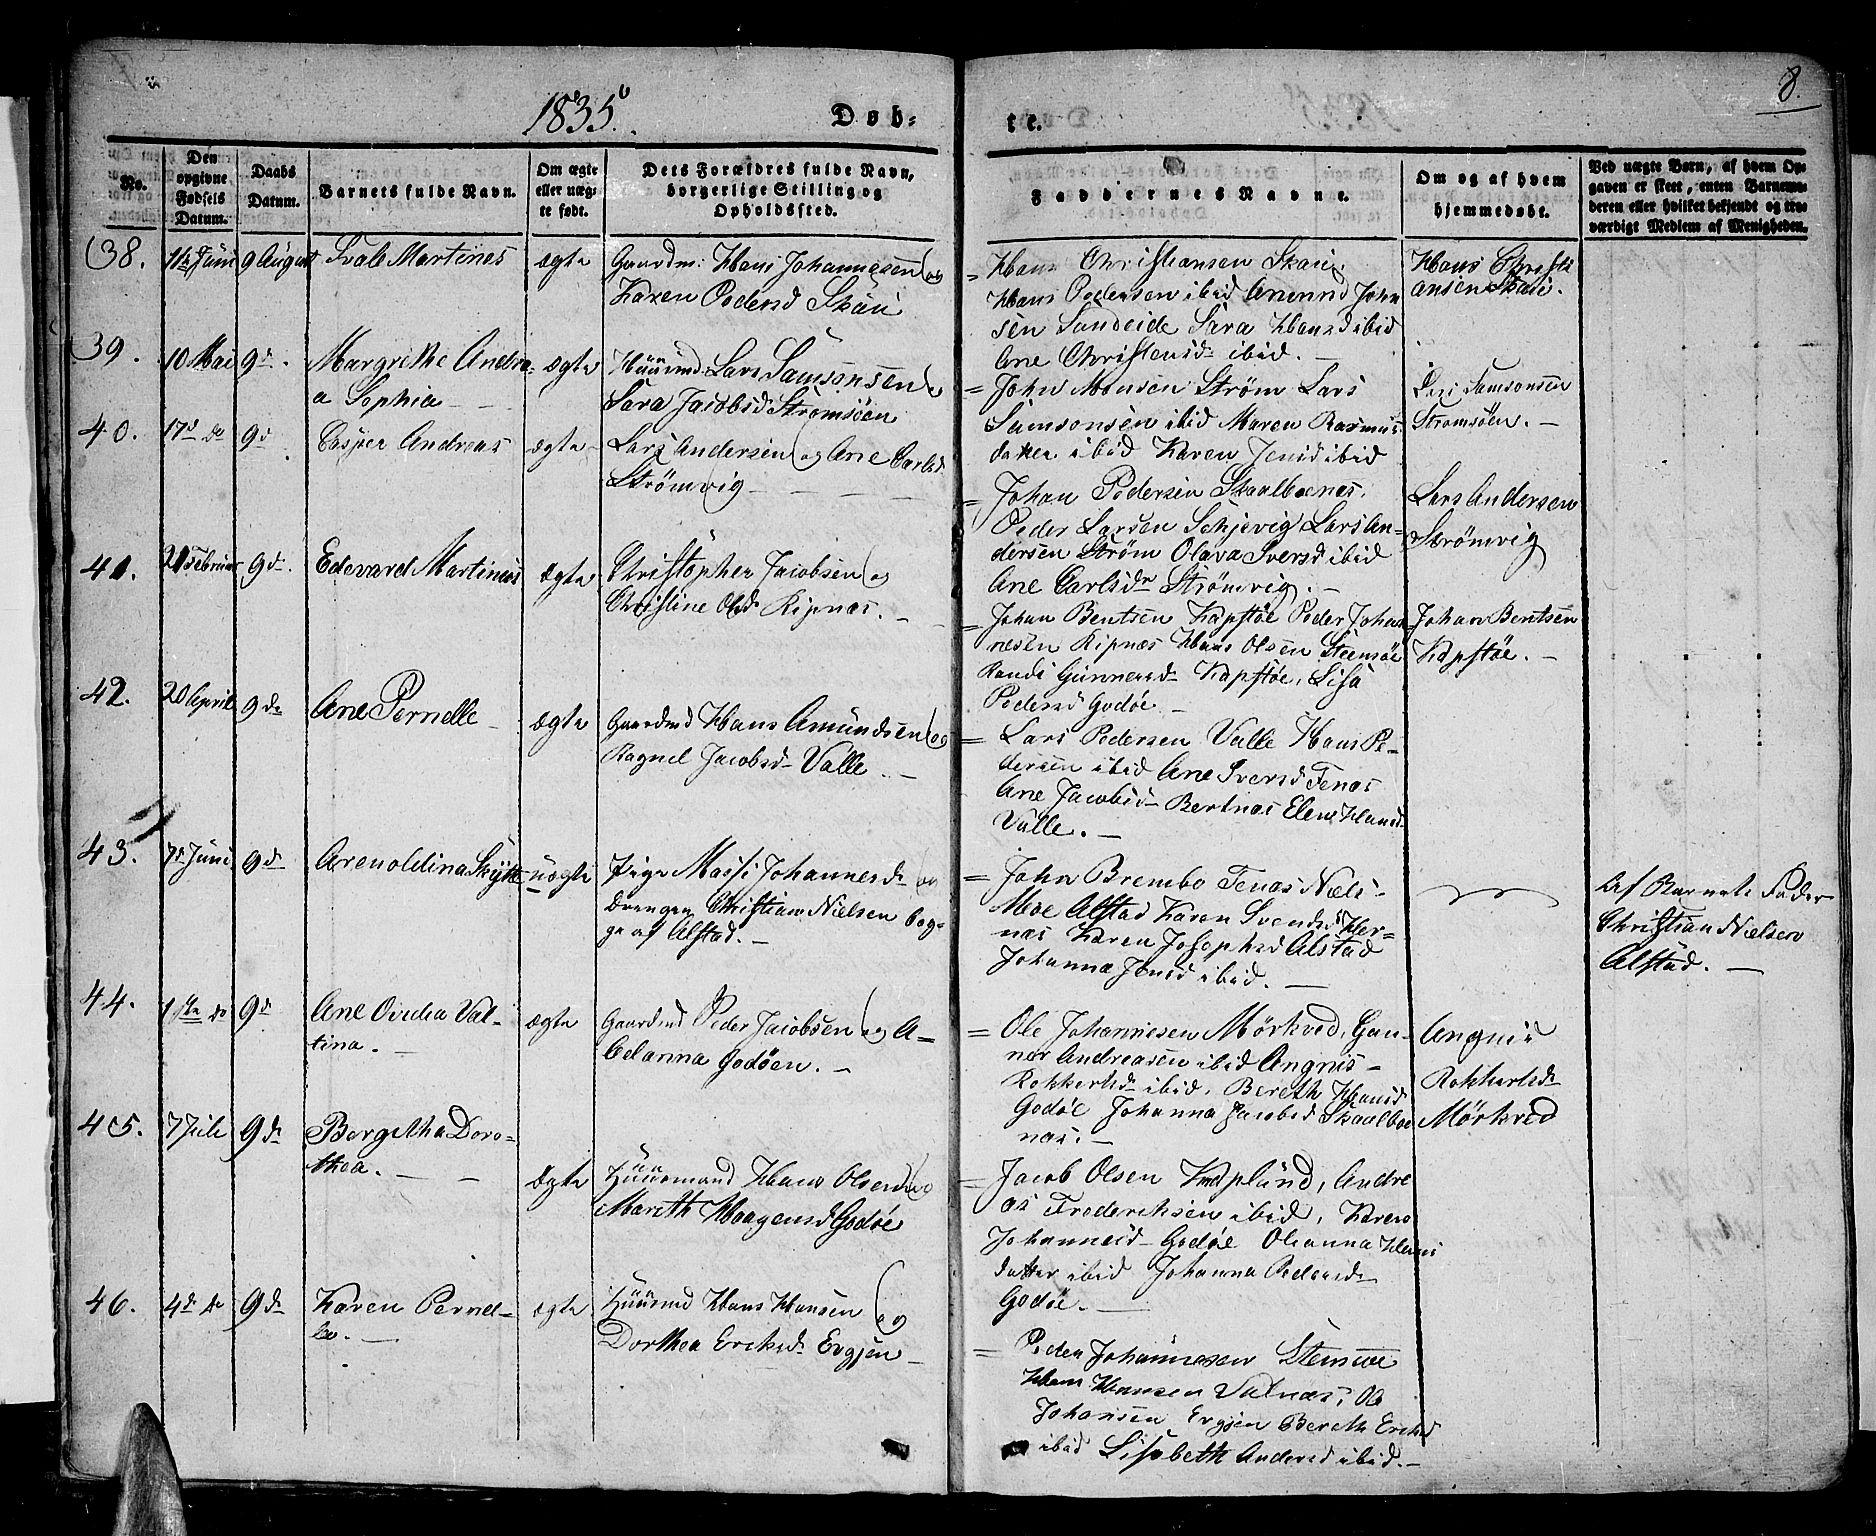 8.
1835.
Døb=
te.
No.
Den
opgivne
Fødsels
Datum.
Daabs
Datum.
Barnets fulde Navn.
Om ægte
eller uæg-
te født.
Dets Forældres fulde Navn,
borgerlige Stilling og
Opholdssted.
Faddernes Navne.
Om og af hvem
hjemmedøbt.
Ved uægte Børn, af hvem Op-
gaven er skeet, enten Barnemo-
deren eller hvilket bekjendt og tro-
værdigt Medlem af Menigheden.
38.
11te Juni
9 August
Ivale Martines
ægte
Gaardm: Hans Johannesen og
Karen Pedersd Skau
= Hans Christiansen Skau,
Hans Pedersen ibid Amund John
sen Sandeide Sara Hansd ibid
Ane Christensd ibid. —
Hans Christi
ansen Skau.
39.
10 Mai
9 d.
Margrethe Andre-
a Sophia —
ægte
Huusmd Lars Samsonsen og
Sara Jacobsd Strømsøen
= John Monsen Strøm Lars
Samsonsen ibid Maren Rasmus
datter ibid Karen Jensd ibid
Lars Samsonsen
Strømsøen. —
40.
17d do
9d
Casper Andreas
ægte
Lars Andersen og Ane Carlsd
Strømvig —
= Johan Pedersen Skaalboenes.
Peder Larsen Schjevig Lars An-
dersen Strøm Olava Iversd ibid
Ane Carlsdr Strømvig. —
Lars Andersen
Strømvig
41.
21 Februar
9 d.
Edevard Martinus
ægte
Christopher Jacobsen og
Christine Olsd Ripnæs. —
= Johan Bentsen Kapstøe Peder Johan
nesen Ripnæs Hans Olsen Steensøe
Randi Gunnersd Kapstøe, Lisa
Pedersd Godøe —
= Johan Bentsen
Kapstøe. —
42.
20 April
9 do
Ane Pernelle
ægte
Gaardmd Hans Amundsen og
Ragnel Jacobsd Valle. —
= Lars Pedersen Valle Hans Pe-
dersen ibid Ane Iversd Tenæs
Ane Jacobsd Bertnæs Elen Hansd
Valle. —
43.
7d Juni
9 d
Arenoldina Skytte
uægte
Pige Massi Johannesd og
Drengen Christian Nielsen beg-
ge af Alstad. —
= John Brembo Tenæs Niels
Moe Alstad Karen Svendsd Her-
næs Karen Josephsd Alstad
Johanna Jensd ibid. —
Af Barnets Fader
Christian Nielsen
Alstad. —
44.
1ste do
9 d
Ane Ovidia Val-
tina. —
ægte
Gaardmd Peder Jacobsen og A-
belanna Godøen. —
= Ole Johannesen Mørkved, Gun-
ner Andreasen ibid Angnis
Rokkertsd ibid. Bereth Hansd
Godøe Johanna Jacobsd Skaalboe
næs. —
Angnis
Rokkertsd
Mørkved
45.
7 Juli
9 do
Bergitha Doro-
thea. —
ægte
Huusmand Hans Olsen og
Mareth Haagensd Godøe
= Jacob Olsen Kaplund, Andre
as Frederiksen ibid, Karen
Johannesd Godøe Olianna Hans
datter ibid Johanna Pedersd
Godøe. —
46.
4d do
9 do
Karen Pernel-
le. —
ægte
Huusmd Hans Hansen og
Dorthea Ericksd Evgjen —
= Peder Johannesen Stensøe
Hans Hansen Valnæs, Ole
Johansen Evgjen Bereth Ericksd
ibid Lisabeth Andersd ibid. —